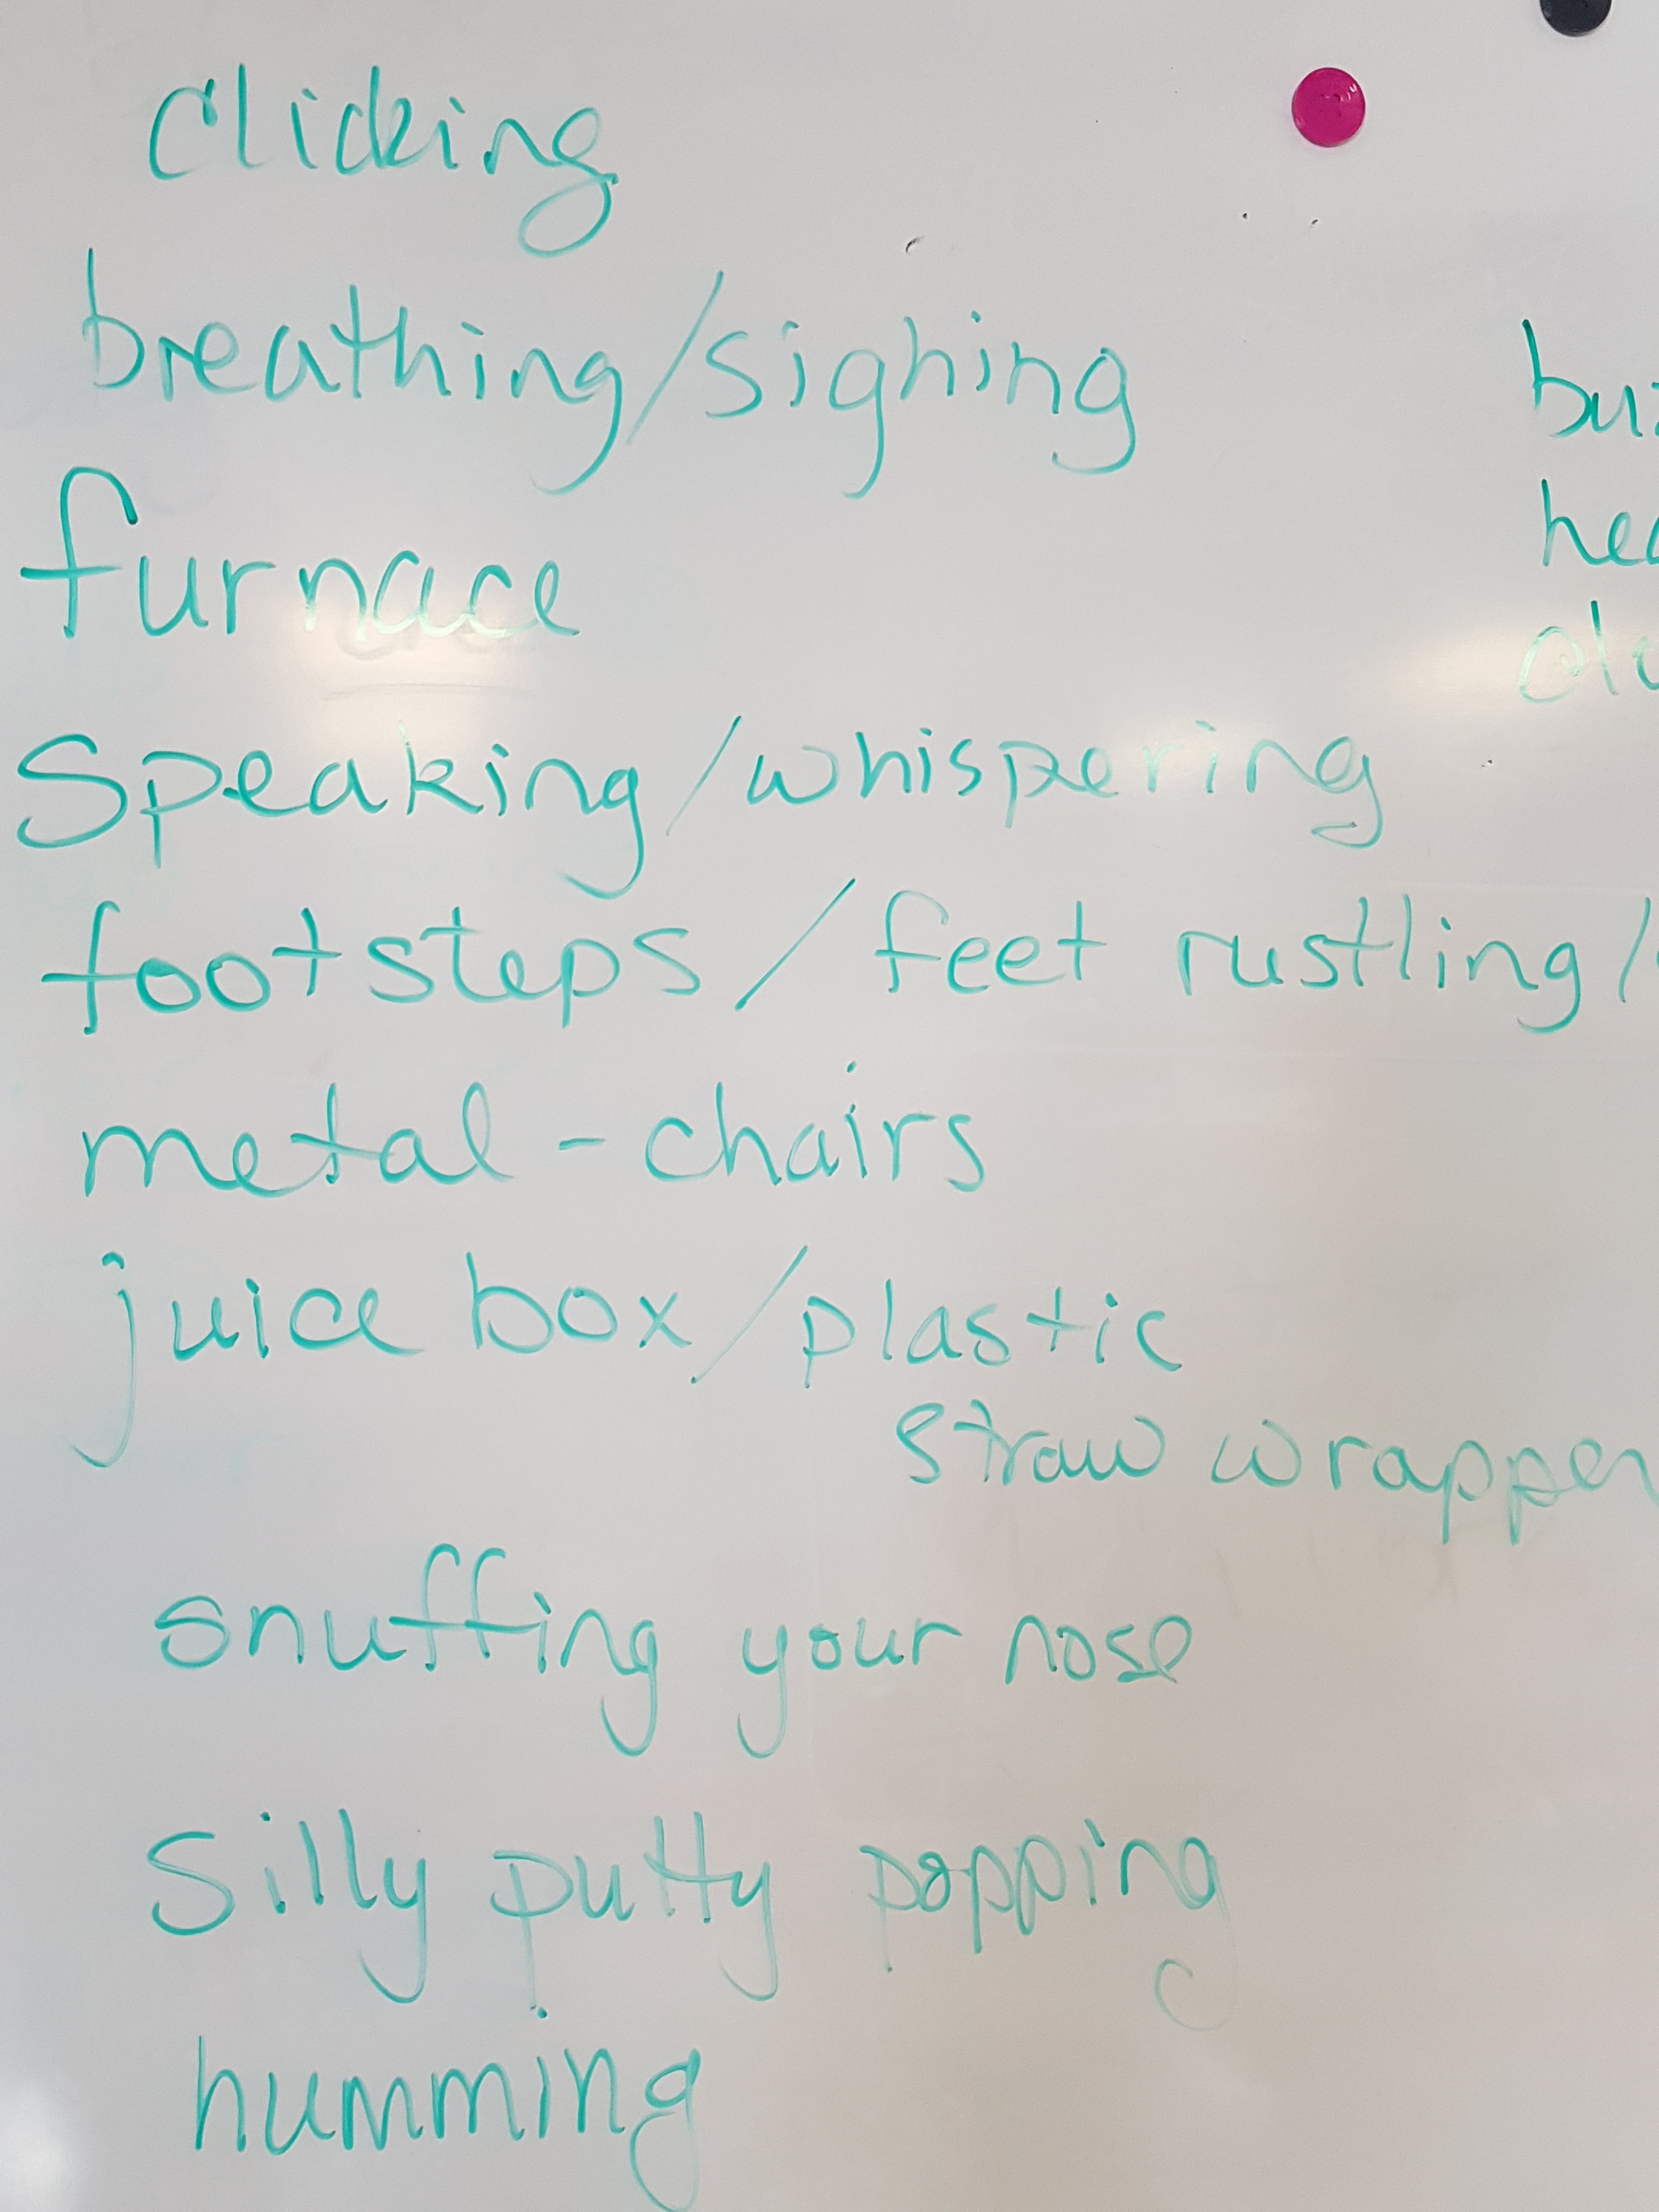 clicking
breathing/sighing
furnace
Speaking/whispering
footsteps / feet rustling/
metal - chairs
juice box/plastic
straw wrapper
snuffing your nose
Silly putty popping
humming